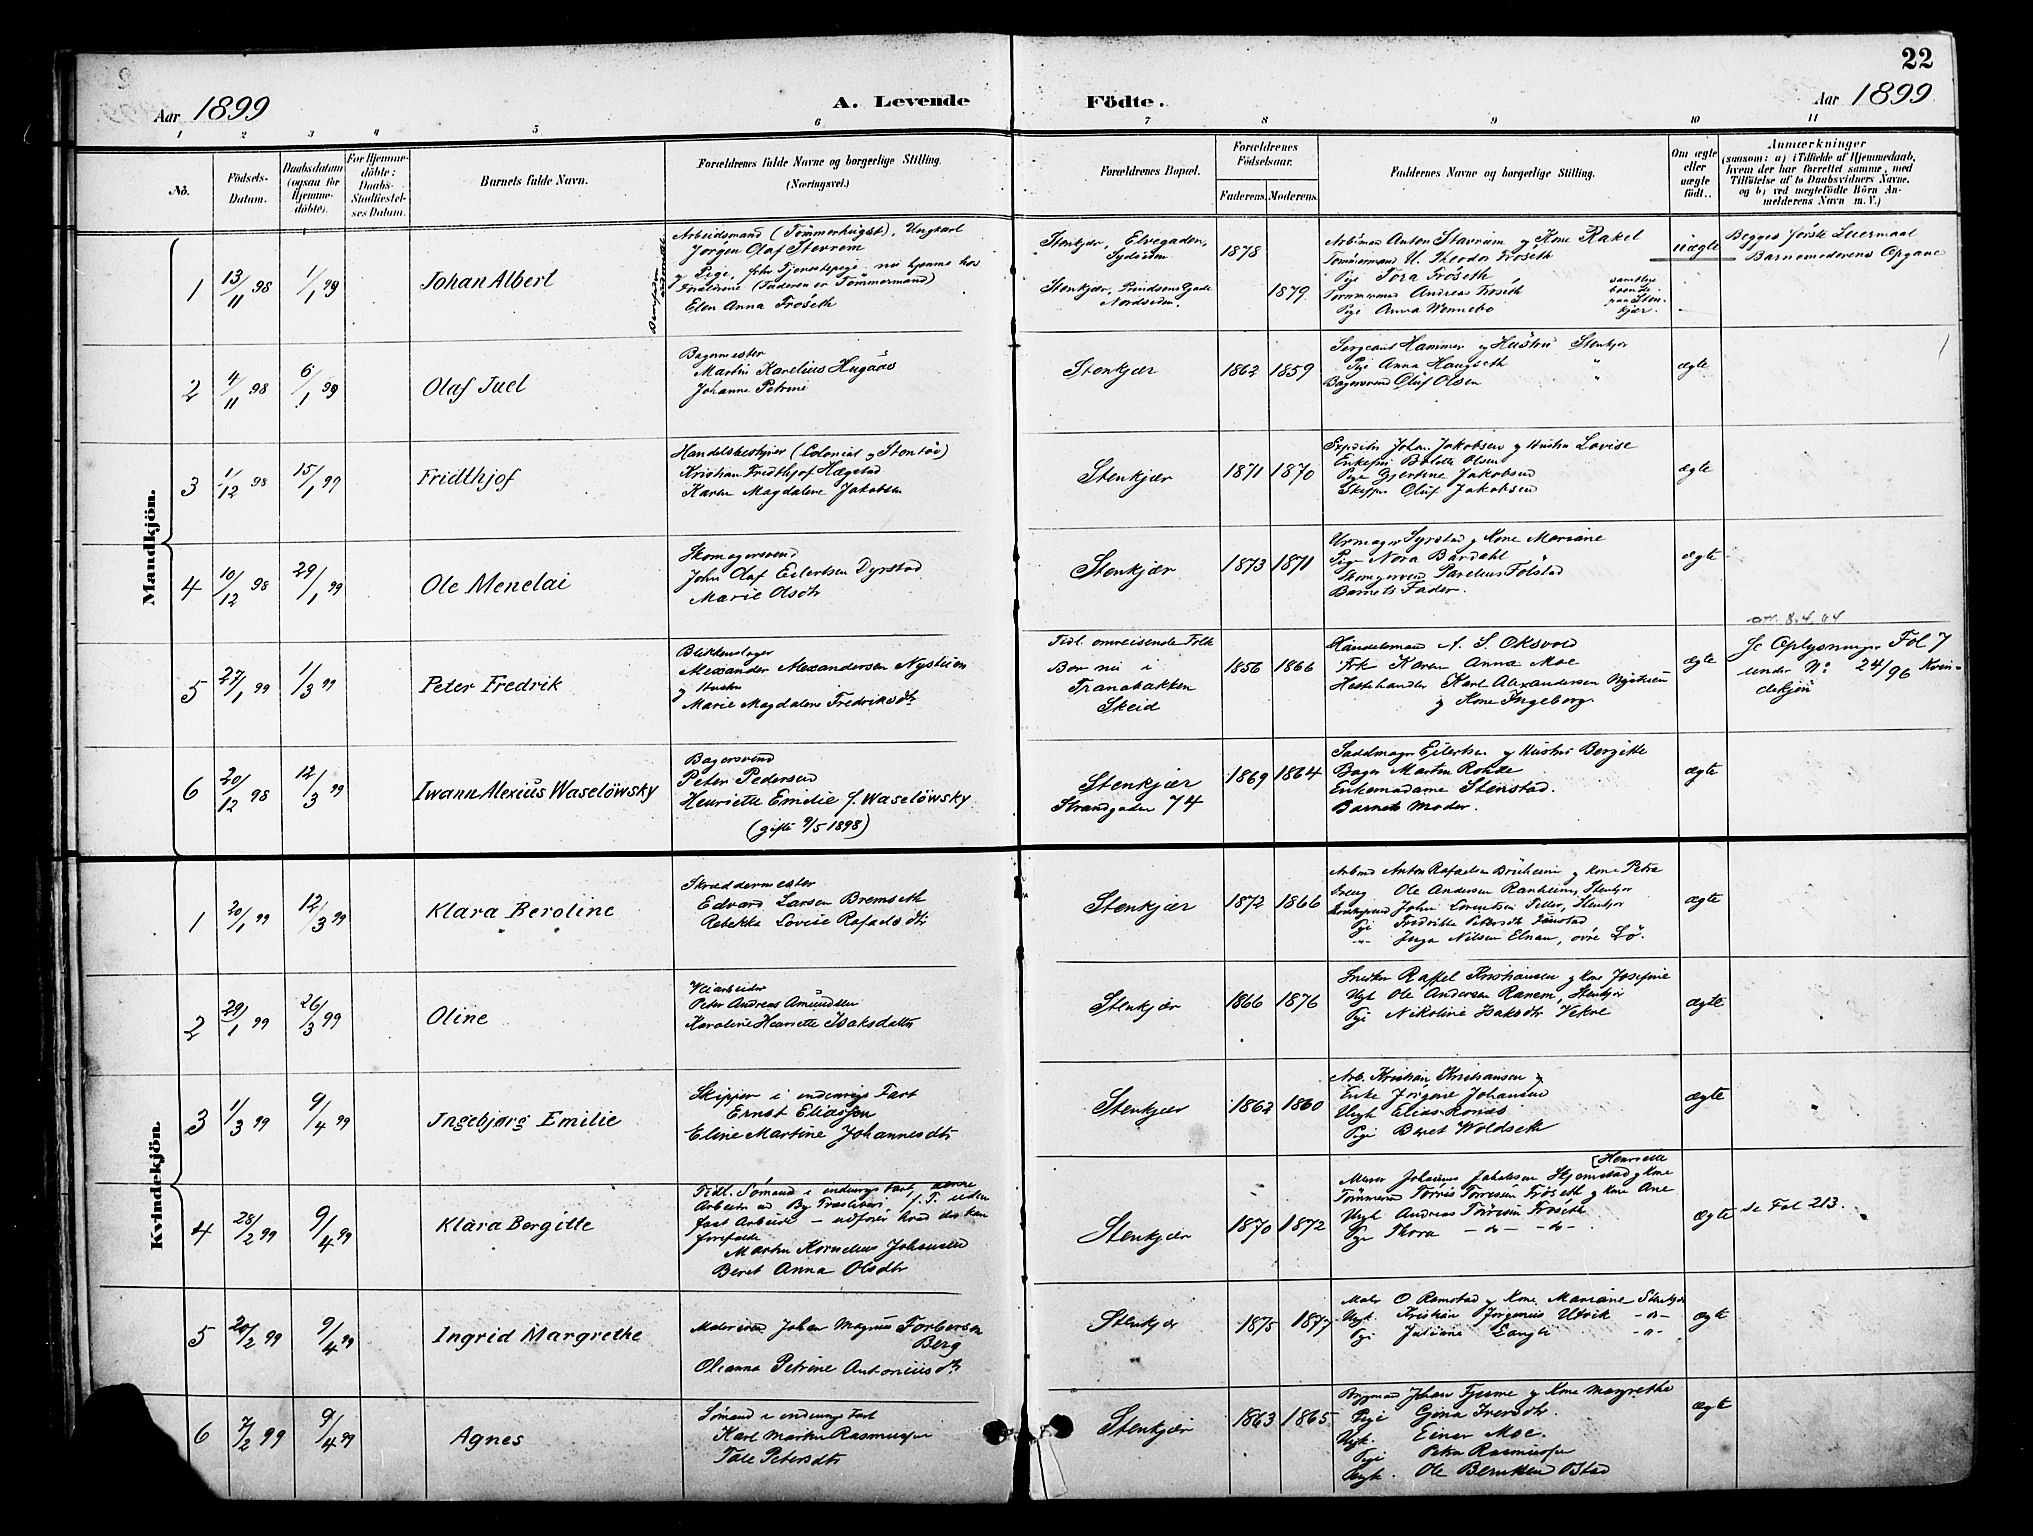 22
Aar 1899
A. Levende
Födte.
Aar 1899
1 2 3 4 5 6 7 8 9 10 11
No.
Födsels-
Datum.
Daabsdatum
(ogsaa for
Hjemme-
döbte).
For Hjemme-
döbte:
Daabs-
Stadfæstel-
ses Datum.
Barnets fulde Navn.
Forældrenes fulde Navne og borgerlige Stilling.
(Næringsvei.)
Forældrenes Bopæl.
Forældrenes
Födselsaar.
Faderens.
Moderens.
Faddernes Navne og borgerlige Stilling.
Om ægte
eller
uægte
födt.
Anmærkninger
(saasom: a) i Tilfælde af Hjemmedaab,
hvem der har forrettet samme, med
Tilföielse af to Daabsvidners Navne,
og b) ved uægtefödte Börn An-
melderens Navn m. V.)
Mandkjön.
1
13/11 98
1/1 99
Johan Albert
Arbeidsmand (Tømmerhugst), Ungkarl
Jørgen Olaf Stavrem
og Pige, før Tjenestepige nu hjemme hos
Forældrene (Faderen er Tømmermand)
Elen Anna Frøseth
Stenkjær, Elvegaden,
Sydsiden
Stenkjær, Prindsens Gade
Nordsiden.
1878
1879
Arbmand Anton Stavrum og Kone Rakel
Tømmermand U. Theodor Frøseth
Pige Tora Frøseth
Tømmermand Andreas Frøseth
Pige Anna Wennebo
samtlige
boende
paa Sten-
kjær.
uægte
Begges første Leiermaal
Barnemoderens Opgave
2
4/11 98
6/1 99
Olaf Juel
Bagermester
Martin Karelius Hugaas
Johanne Petrine
Stenkjær
1862 1859
Sergeant Hammer og Hustru Stenkjær
Pige Anna Haugseth "
Bagersvend Oluf Olsen "
ægte
3
1/12 98
15/1 99
Fridthjof
Handelsbestyrer (Colonial og Stentøi)
Kristian Fridthjof Hægstad
Karen Magdalene Jakobsen
Stenkjær
1871 1870
Expeditør Johan Jakobsen og Hustru Lovise
Enkefru Bolette Olsen
Pige Gjertine Jakobsen
Skipper Oluf Jakobsen
ægte
4
10/12 98
29/1 99
Ole Menelai
Skomagersvend
John Olaf Eilertsen Dyrstad
Marie Olsdtr
Stenkjær
1873 1871
Urmager Syrstad og Kone Mariane
Pige Nora Bardahl
Skomgersvend Parelius Følstad
Barnets Fader.
ægte
5
27/1 99
1/3 99
Peter Fredrik
Blikkenslager
Alexander Alexandersen Nystuen
og Hustru
Marie Magdalene Fredriksdtr
Fidl. omreisende Folk
Bor nu i
Tranabakken
Skeid
1856 1866
Handelsmand A. S. Oksvold
Frk Karen Anna Moe
Hestehandler Karl Alexandersen Nystuen
og Kone Ingeborg.
ægte
Se Oplysninger Fol 7
under No 24/96 Kvin-
dekjøn
6
20/12 98
12/3 99
Iwann Alexius Waselöwsky
Bagersvend
Peter Pedersen
Henriette Emilie f. Waselöwsky
(gifte 9/5 1898)
Stenkjær
Strandgaden 74
1869 1864
Saddmager Eilertsen og Hustru Bergitte
Bager Martin Rohde
Enkemadame Stenstad.
Barnets Moder.
ægte
Kvindekjön.
1
20/1 99
12/3 99
Klara Beroline
Skræddermester
Edvard Larsen Bremseth
Rebekka Lovise Rafaelsdtr
Stenkjær
1872 1866
Arbmd Anton Rafaelsen Brüheim og Kone Petra
Ole Andersen Ranheim, Stenkjær
John Lorentsen Teller, Stenkjær
Pige Fredrikke Petersdtr
-"- Inga Nilsen Elnan, øvre Lø.
ægte
2
29/1 99
26/3 99
Oline
Veiarbeider
Peter Andreas Amundsen
Karoline Henriette Isaksdatter
Stenkjær
1866 1876
Snedker Rafel Kristiansen og Kone Josefine
Ungk Ole Andersen Ranem, Stenkjær
Pige Nikoline Isaksdtr Vekre
ægte
3
1/3 99
9/4 99
Ingebjørg Emilie
Skipper i indenrigs Fart
Ernst Eliassen
Eline Martine Johannesdtr
Stenkjær
1862 1860
Arb. Kristian Kristiansen
Enke Jørgine Johansen
Ungk Elias Ronæs
Pige Beret Woldseth
ægte
4
28/2 99
9/4 99
Klara Bergitte
Fidl. Sømand i indenrigs Fart, senere
Arbeider ved By Træsliberi, f. T. uden
fast Arbeide – udfører hvad der kan
forefalde
Martin Kornelius Johansen
Beret Anna Olsdtr
Stenkjær
1870 1872
[Henriette
Murer Johannes Jakobsen Hjemstad og Kone
Tømmermd Tørris Torresen Frøseth og Kone Ane
Ungk Andreas Tørresen Frøseth
Pige Thora – do – – do –
ægte
se Fol 213.
5
20/2 99
9/4 99
Ingrid Margrethe
Malersvend Johan Magnus Torbersen
Berg
Oleanna Petrine Antoniusdtr
Stenkjær
1875 1877
Maler O Ramstad og Kone Mariane Stenkjær
Ungk. Kristian Jørgenius Utvik –"–
Pige Juliane Langli –"–
ægte
6
7/2 99
9/4 99
Agnes
Sømand i indenrigs Fart
Karl Martin Rasmussen
Tale Petersdtr
Stenkjær
1863 1865
Brygmand Johan Tjesme og Kone Margrethe
Pige Gina Iversdtr.
Ungk. Einar Moe.
Pige Petra Rasmussen
Ungk. Ole Berntsen Østad
ægte